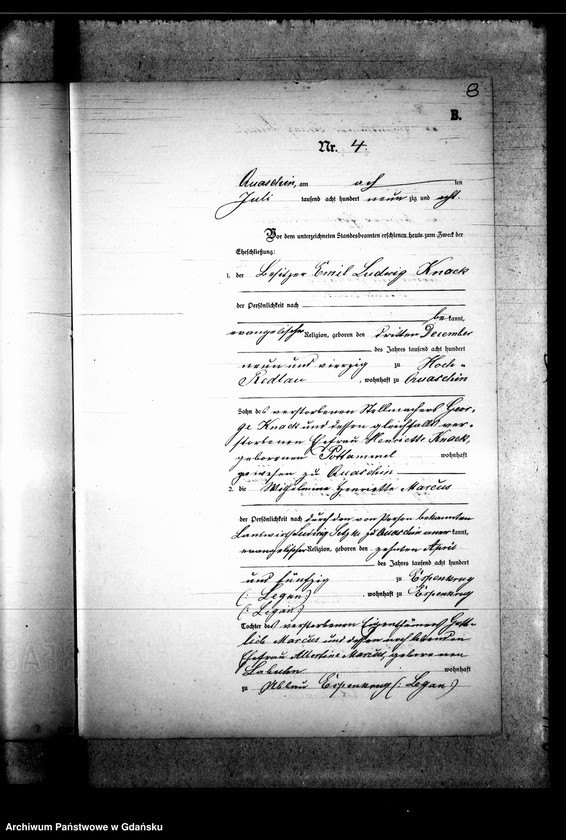 8
B.
Nr. 4.
Quaschin, am acht ten
Juli tausend acht hundert neun zig und acht.
Vor dem unterzeichneten Standesbeamten erschienen heute zum Zweck der
Eheschließung:
1. der Besitzer Emil Ludwig Knaack
der Persönlichkeit nach
be kannt,
evangelischer Religion, geboren den dritten December
des Jahres tausend acht hundert
neun und vierzig zu Hoch-
Redlau, wohnhaft zu Quaschin
Sohn des verstorbenen Stellmachers Geor-
ge Knaack und dessen gleichfalls ver-
storbenen Ehefrau Henriette Knaack,
geborenen wohnhaft
gewesen zu Quaschin
2. die Wilhelmine Henriette Marcus
der Persönlichkeit nach durch den von Person bekannten
Landwirth Ludwig zu Quaschin kannt,
evangelischer Religion, geboren den zehnten April
des Jahres tausend acht hundert
und fünfzig zu Espenkrug
(: Legan :), wohnhaft zu Espenkrug
(: Legan :)
Tochter des verstorbenen Eigenthümers Gott-
lieb Marcus und dessen noch lebenden
Ehefrau Albertine Marcus, geborenen
Labuhn wohnhaft
zu Espenkrug (: Legan :)
Archiwum Państwowe w Gdańsku